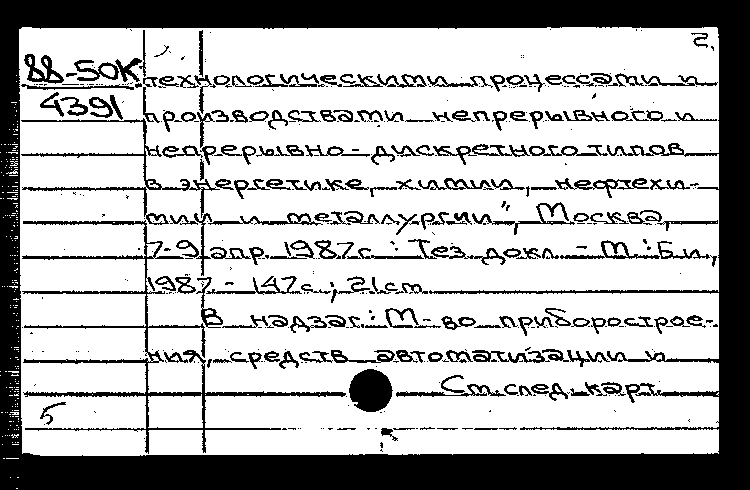 2.
88-50К технологическими процессами и
4391 производствами непрерывного и
непрерывно-дискретного типов
в энергетике, химии, нефтехи-
мии и металлургии", Москва,
7-9 апр. 1987г. : Тез. докл. - М.: Б.и.,
1987. - 147с.; 21cm
В надзаг.: М-во приборострое-
ния, средств автоматизации и
Ст. след. карт.
5